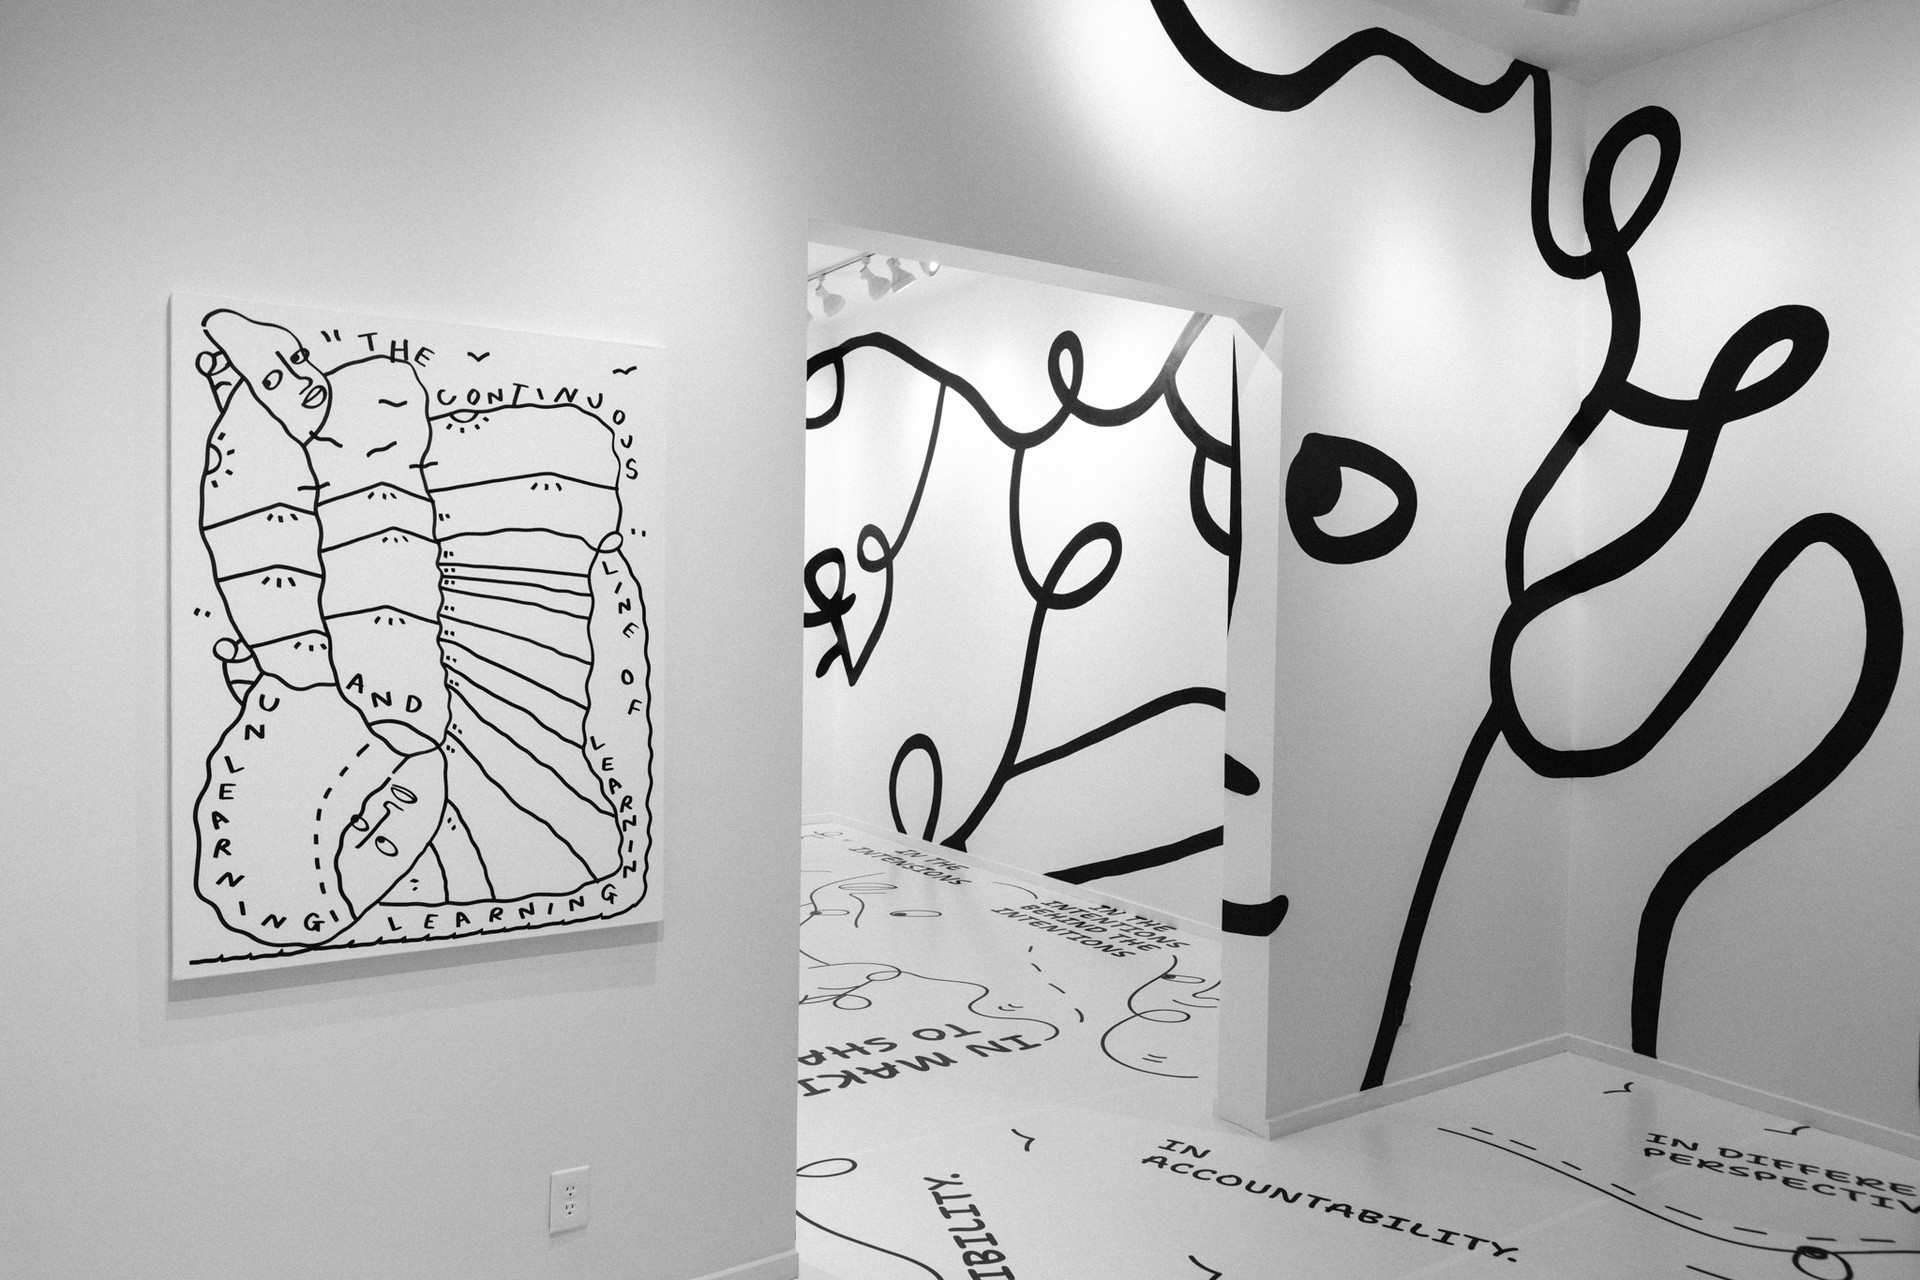 "THE
CONTINUOUS
LINE OF
LEARNIN
LEARNING
AND
UNLEARNING!
IN THE
INTENSIONS
IN THE
INTENTIONS
BEHIND THE
INTENTIONS
IN MAKI
TO SHA
IBILITY.
IN
ACCOUNTABILITY.
IN DIFFERE
PERSPECTIV